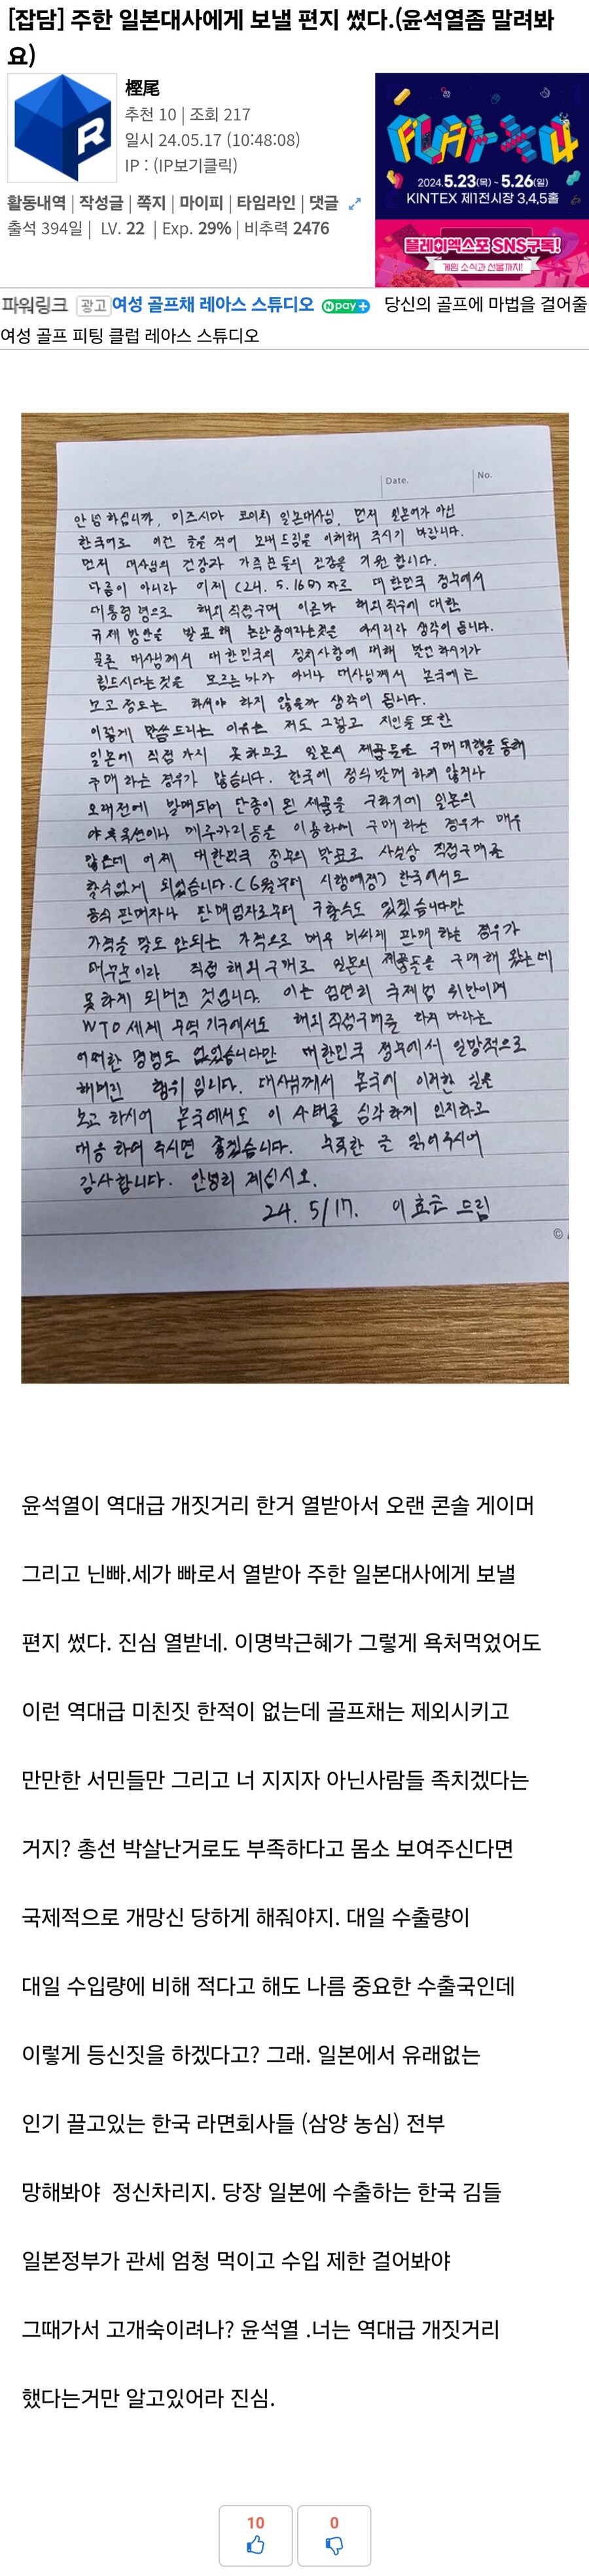 [잡담] 주한 일본대사에게 보낼 편지 썼다.(윤석열좀 말려봐
요)
樫尾
추천 10 | 조회 217
일시 24.05.17 (10:48:08)
IP : (IP보기클릭)
활동내역 | 작성글 | 쪽지 | 마이피 | 타임라인 | 댓글
출석 394일 | LV. 22 | Exp. 29% | 비추력 2476
R
PLAY X4
2024.5.23(목) ~ 5.26(일)
KINTEX 제1전시장 3,4,5홀
플레이엑스포 SNS구독!
게임 소식과 선물까지!
파워링크 광고 여성 골프채 레아스 스튜디오 N pay+ 당신의 골프에 마법을 걸어줄
여성 골프 피팅 클럽 레아스 스튜디오
Date. No.
안녕하십니까, 미즈시마 코이치 일본대사님. 먼저 일본어가 아닌
한국어로 이런 글을 적어 보내드림을 이해해 주시기 바랍니다.
먼저 대사님의 건강과 가족분들의 건강을 기원합니다.
다름이 아니라 어제 (24. 5. 16일)자로 대한민국 정부에서
대통령령으로 해외직접구매 이른바 해외직구에 대한
규제 방안을 발표해 논란중이라는것은 아시리라 생각이 됩니다.
물론 대사님께서 대한민국의 정치사항에 대해 발언하시기가
힘드시다는것을 모르는바가 아니나 대사님께서 본국에
보고정도는 하셔야 하지 않을까 생각이 됩니다.
이렇게 말씀드리는 이유는 저도 그렇고 지인들 또한
일본에 직접 가지 못하므로 일본의 제품들을 구매대행을 통해
구매하는 경우가 많습니다. 한국에 정식발매하지 않거나
오래전에 발매되어 단종이 된 제품을 구하기에 일본의
야후옥션이나 메루카리등을 이용하여 구매하는 경우가 매우
많은데 어제 대한민국 정부의 발표로 사실상 직접구매를
할수없게 되었습니다.(6월부터 시행예정) 한국에서도
공식 판매자나 판매업자로부터 구할수도 있겠습니다만
가격을 말도 안되는 가격으로 매우 비싸게 판매하는 경우가
대부분이라 직접 해외구매로 일본의 제품들을 구매해 왔는데
못하게 되버린 것입니다. 이는 엄연히 국제법 위반이며
WTO 세계 무역기구에서도 해외직접구매를 하지 마라는
어떠한 명령도 없었습니다만 대한민국 정부에서 일방적으로
해버린 행위입니다. 대사님께서 본국에 이러한 일을
보고하시어 본국에서도 이 사태를 심각하게 인지하고
대응하여 주시면 좋겠습니다. 부족한 글 읽어주시어
감사합니다. 안녕히 계십시오.
24. 5/17. 이효근 드림
©
윤석열이 역대급 개짓거리 한거 열받아서 오랜 콘솔 게이머
그리고 닌빠.세가 빠로서 열받아 주한 일본대사에게 보낼
편지 썼다. 진심 열받네. 이명박근혜가 그렇게 욕처먹었어도
이런 역대급 미친짓 한적이 없는데 골프채는 제외시키고
만만한 서민들만 그리고 너 지지자 아닌사람들 족치겠다는
거지? 총선 박살난거로도 부족하다고 몸소 보여주신다면
국제적으로 개망신 당하게 해줘야지. 대일 수출량이
대일 수입량에 비해 적다고 해도 나름 중요한 수출국인데
이렇게 등신짓을 하겠다고? 그래. 일본에서 유래없는
인기 끌고있는 한국 라면회사들 (삼양 농심) 전부
망해봐야 정신차리지. 당장 일본에 수출하는 한국 김들
일본정부가 관세 엄청 먹이고 수입 제한 걸어봐야
그때가서 고개숙이려나? 윤석열 .너는 역대급 개짓거리
했다는거만 알고있어라 진심.
10 0